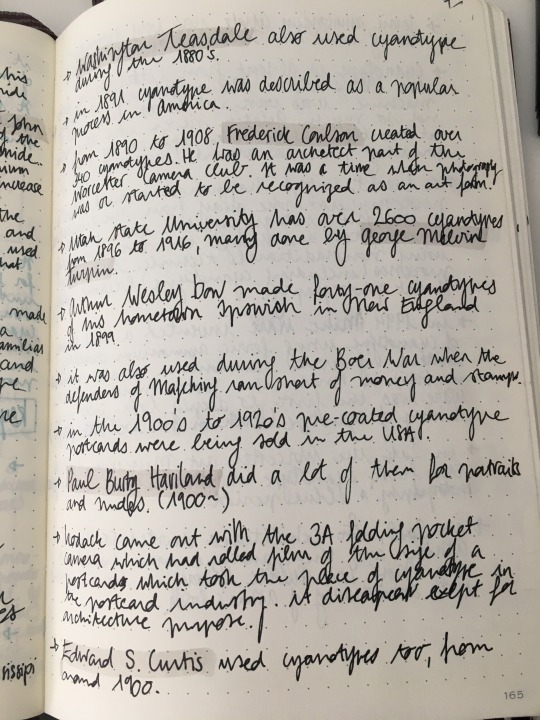 his
ide
John
of the
mide.
nium
increase
the
and
used
hat
made
a
amilias
and
pe
re
es
rissipi
→ Washington Teasdale also used cyanotype
during the 1880's.
→ in 1891. cyanotype was described as a popular
process in america.
→ from 1890 to 1908 Frederick Coulson created over
340 cyanotypes. He was an archetect part of the
Worcetter Camera Club. It was a time when photography
was or started to be recognized as an art form.
→ Utah State University has over 2600 cyanotypes
from 1896 to 1916, many done by george Melvin
turpin.
→ arthur Wesley Dow made forty-one cyanotypes
of his hometown Ipswich in New England
in 1899
→ it was also used during the Boer War when the
defenders of Mafching ran short of money and stamps.
→ in the 1900's to 1920's pre-coated cyanotype
postcards were being sold in the USA.
→ Paul Burty Haviland did a lot of them for portraits
and nudes. (1900~)
→ kodack came out with the 3A folding pocket
camera which had rolled film of the size of a
postcards which took the place of cyanotype in
the postcard industry. it diseapear exept for
architecture purpose.
→ Edward S. Curtis used cyanotypes too, from
around 1900.
165